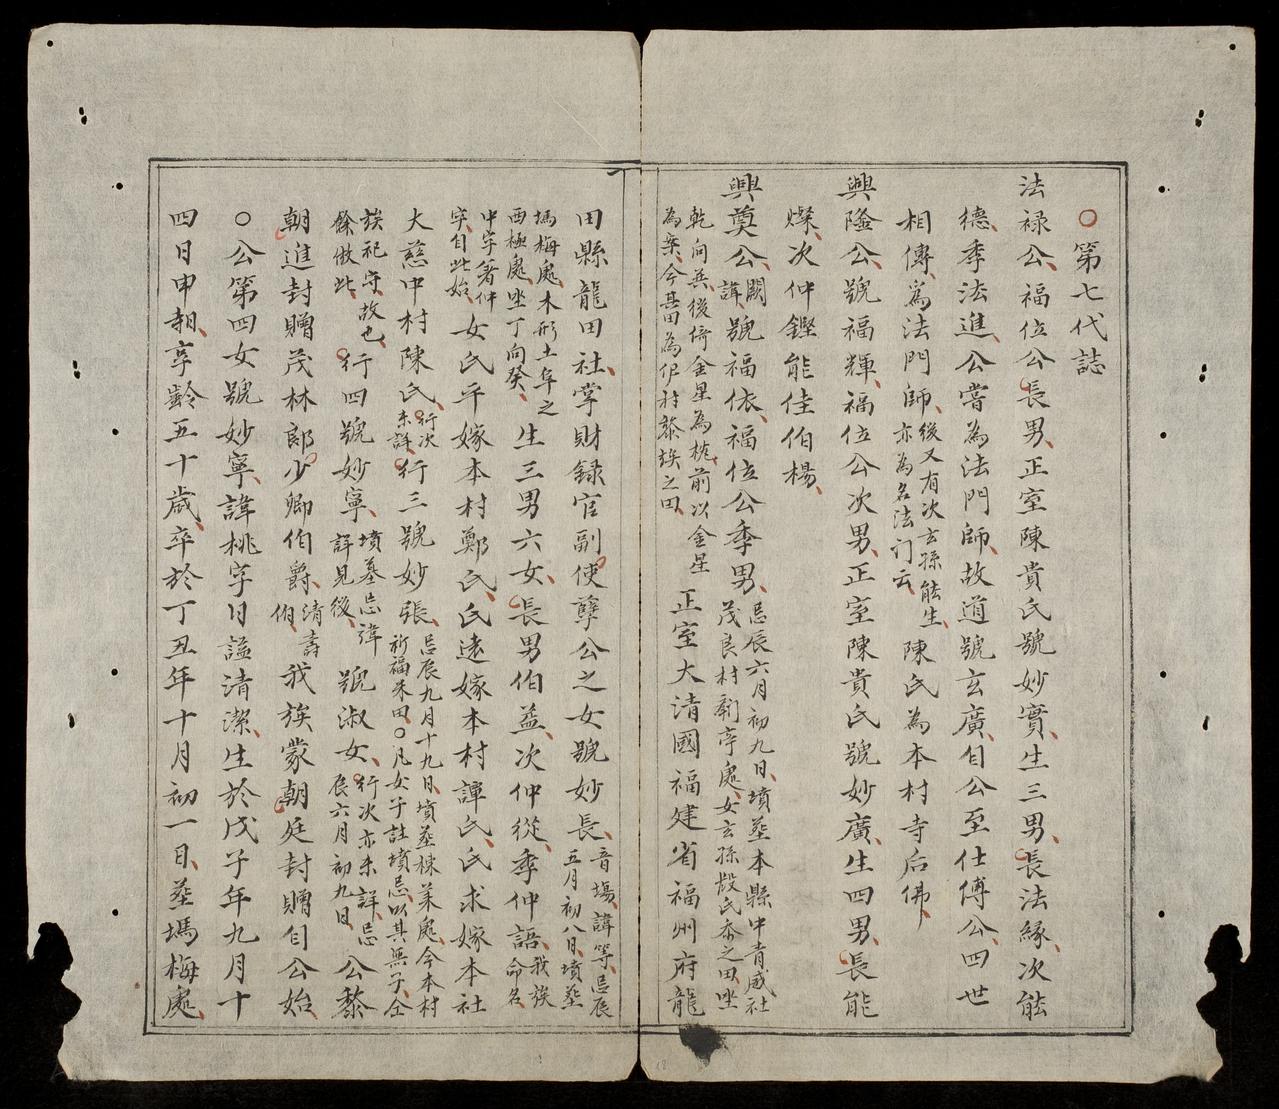 ○第七代誌
法禄公、福位公長男、正室陳貴氏號妙實、生三男、長法緣、次能
德、季法進、公嘗為法門師、故道號玄廣、自公至仕傅公、四世
相傳為法門師、後又有次玄孫能生、亦為名法门云、陳氏為本村寺后佛、
興隆公、號福輝、福位公次男、正室陳貴氏號妙廣、生四男、長能
燦、次仲鏗能佳伯楊、
興奠公、諱闕、號福依、福位公季男、忌辰六月初九日、墳葬本縣中青威社茂良村剬亭處、女玄孫殷氏夲之田、坐
乾向巽、後倚金星為枕、前以金星為案、今甚田為仍社黎族之田、正室大清國福建省福州府龍
田縣龍田社、掌財録官副使孽公之女、號妙長、音塲、諱等、忌辰五月初八日、墳葬
塢梅處、木形土阜之西極處、坐丁向癸、生三男六女、長男伯益、次仲從、季仲語、我族命名
中字著仲字、自此始、女氏平嫁本村鄭氏、氏遠嫁本村譚氏、氏求嫁本社
大慈中村陳氏、行次未詳、行三號妙張、忌辰九月十九日、墳葬棟菜處、今本村祈福朱田、○凡女子註墳忌、以其無子、仝
族祀守故也、餘倣此、行四號妙寧、墳墓忌諱詳見後、號淑女、行次亦未詳、忌辰六月初九日、公黎
朝進封贈茂林郎、少卿伯爵、清壽伯、我族蒙朝庭封贈自公始、
○公第四女號妙寧、諱桃、字日謚清潔、生於戊子年九月十
四日申朝、享齡五十歲、卒於丁丑年十月初一日、葬塢梅處、